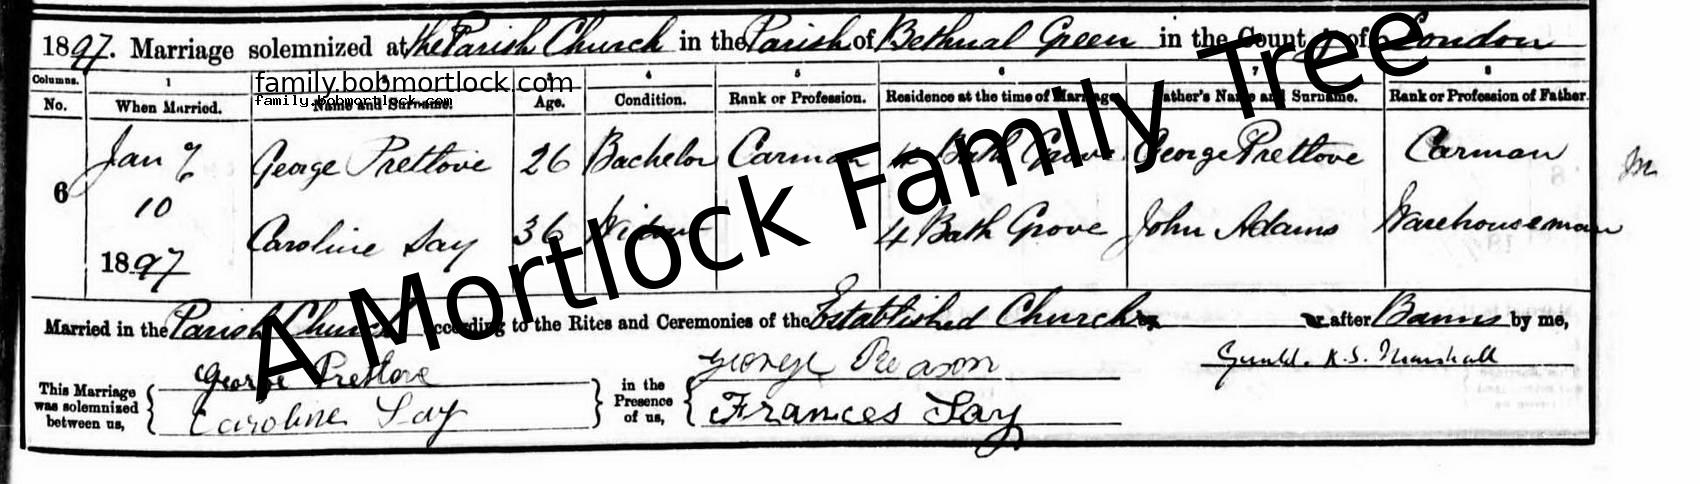 1897. Marriage solemnized at the Parish Church in the Parish of Bethnal Green in the County of London
Columns. 1 2 3 4 5 6 7 8
family.bobmortlock.com
family.bobmortlock.com
No. When Married. Name and Surname. Age. Condition. Rank or Profession. Residence at the time of Marriage. Father's Name and Surname. Rank or Profession of Father.
6 Jan 10 1897 George Prettove 26 Bachelor Carman 4 Bath Grove George Prettove Carman
Caroline Say 36 Widow 4 Bath Grove John Adams Warehouseman
Married in the Parish Church according to the Rites and Ceremonies of the Established Church or after Banns by me,
K.S. Marshall
This Marriage was solemnized between us, George Prettove Caroline Say in the Presence of us, George Reason Frances Say
A Mortlock Family Tree